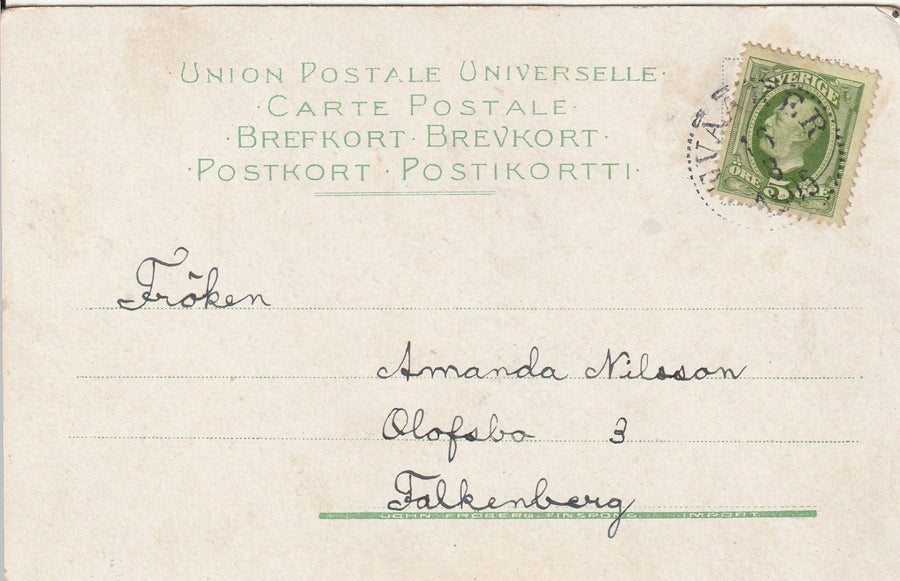 ·UNION POSTALE UNIVERSELLE·
·CARTE POSTALE·
·BREFKORT·BREVKORT·
·POSTKORT·POSTIKORTTI·
SVERIGE
5
ÖRE
Fröken
Amanda Nilsson
Olofsbo 3
Falkenberg
JOHN FRÖBERG, FINSPONG. IMPORT.